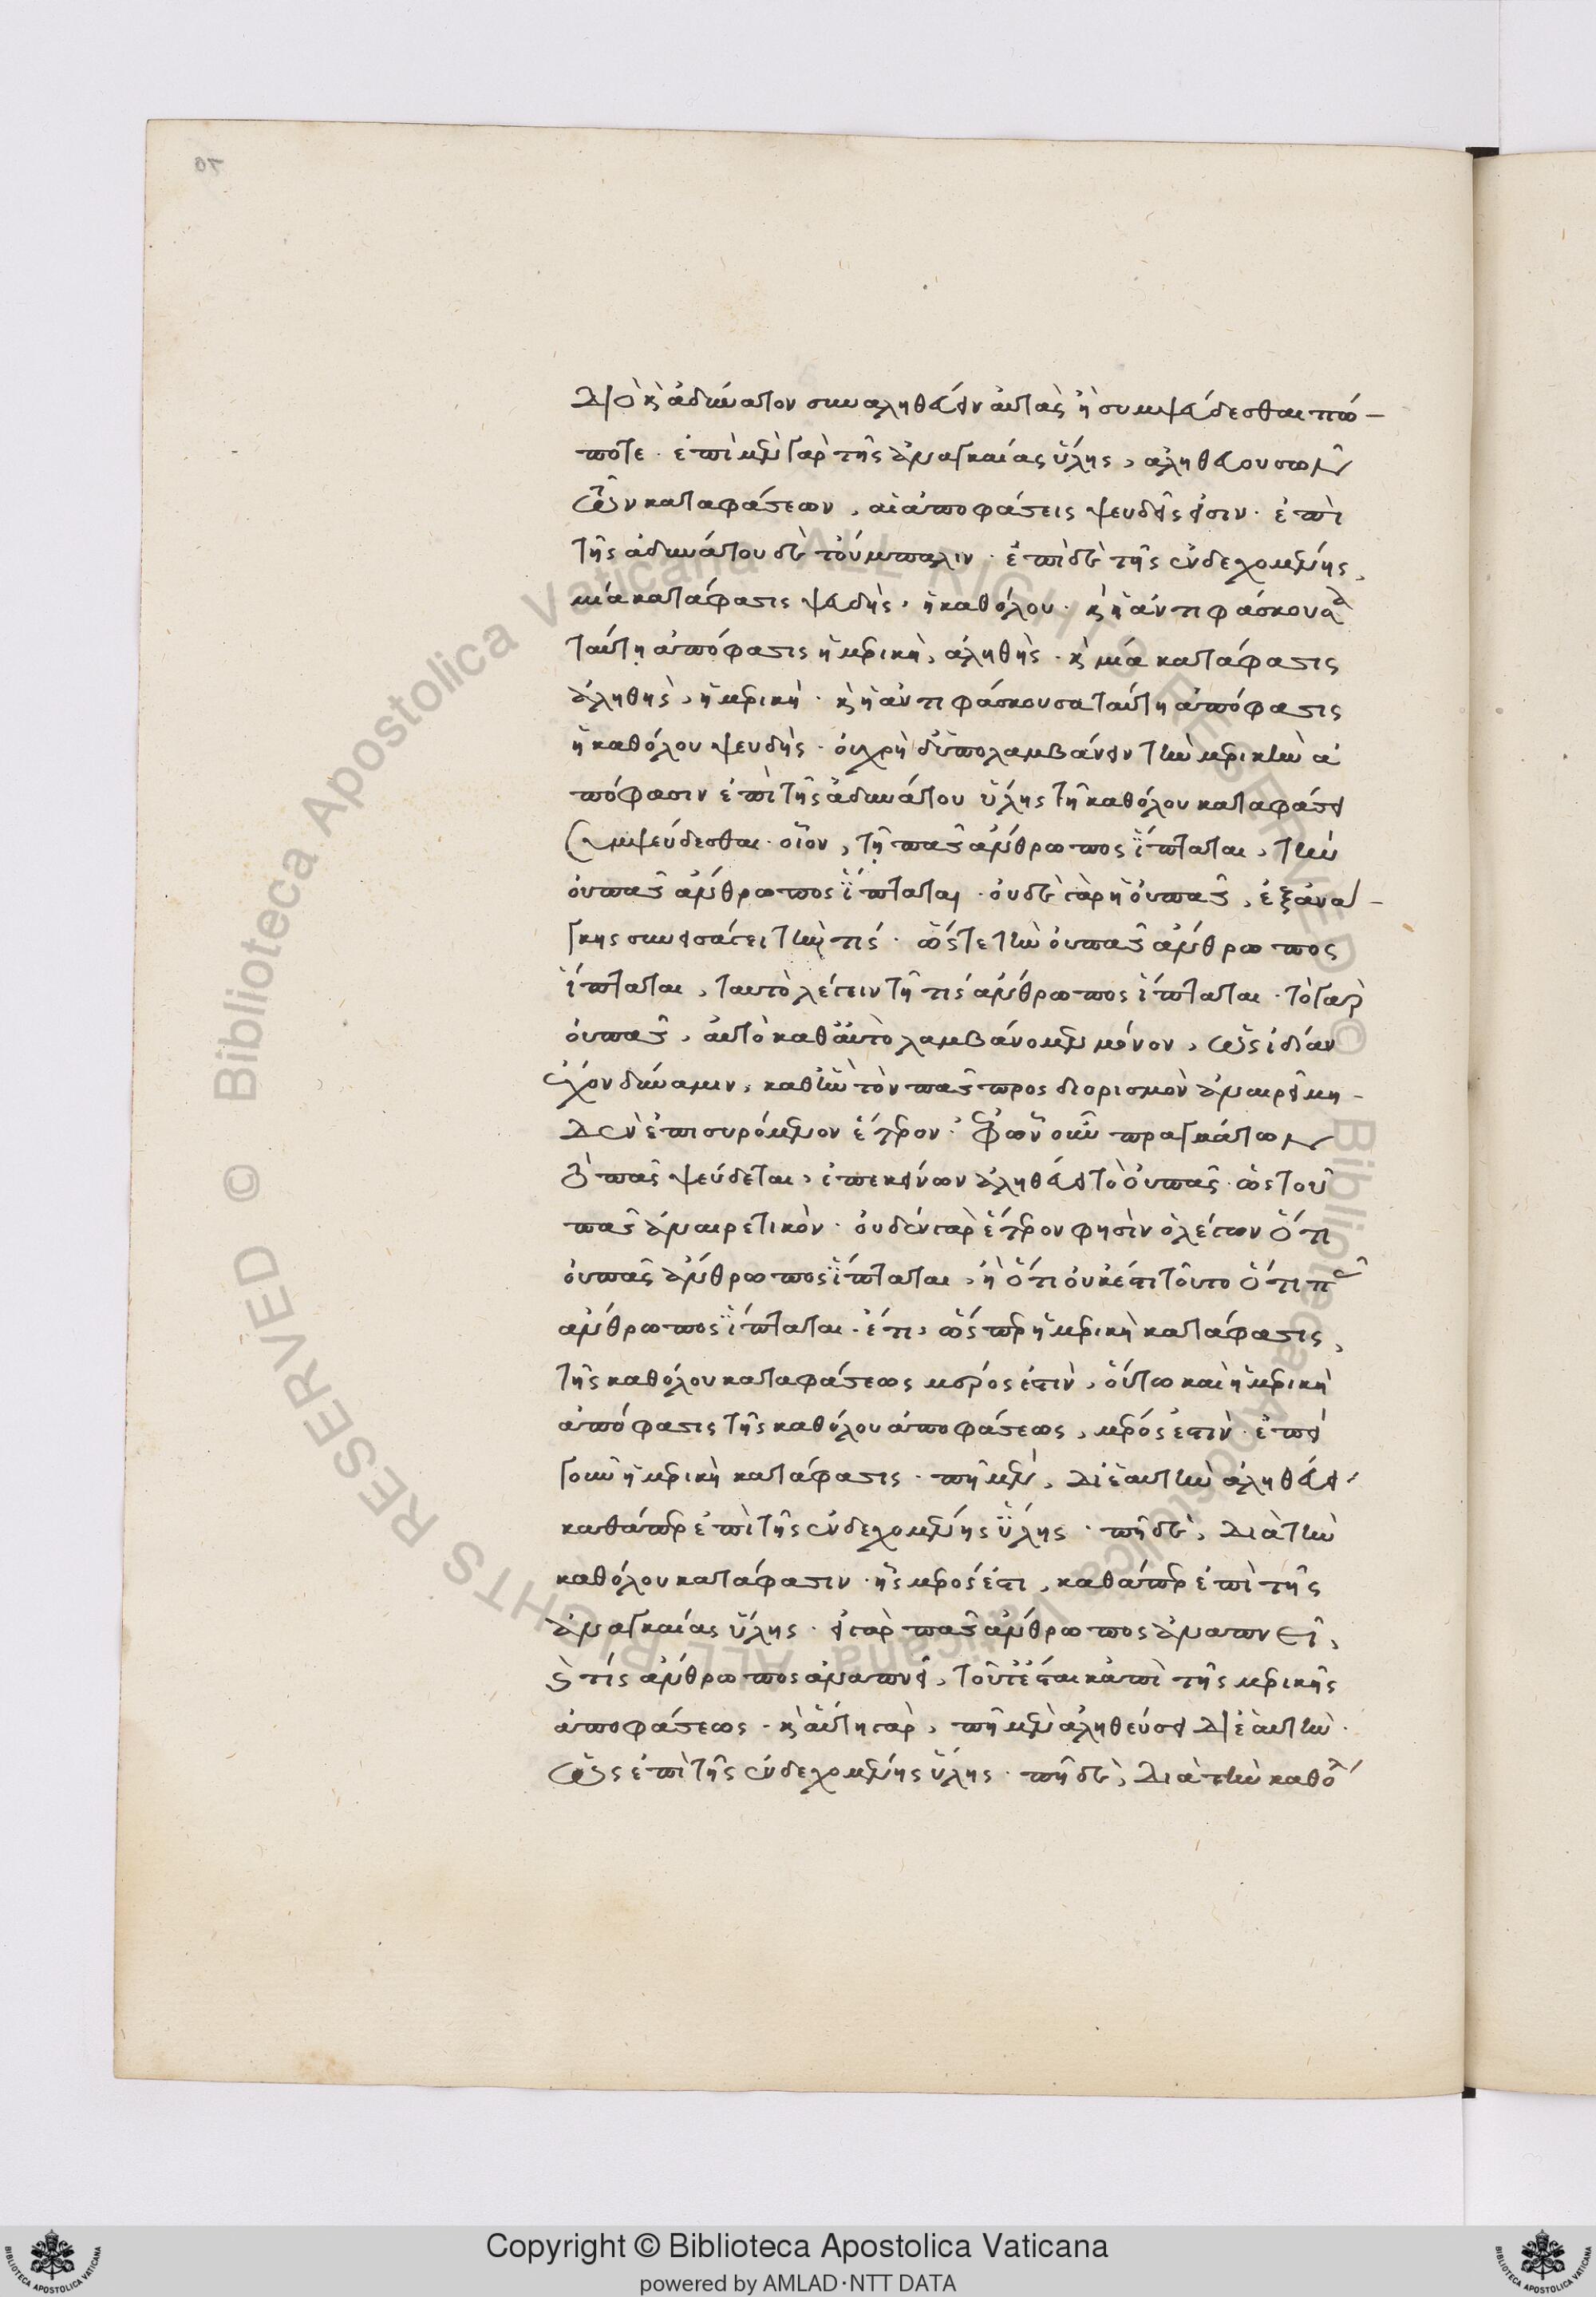 διὸ κ̀ ἀδύνατον συναληθεύειν αὐτὰς ἢ συμψεύδεσθαι πώ-
ποτε. ἐπὶ μὲν γὰρ τῆς ἀναγκαίας ὕλης, ἀληθευουσῶν
τῶν καταφάσεων, αἱ ἀποφάσεις ψευδεῖς εἰσιν. ἐπὶ
τῆς ἀδυνάτου δὲ τοὔμπαλιν. ἐπὶ δὲ τῆς ἐνδεχομένης,
μία κατάφασις ψευδής, ἡ καθόλου. κ̀ ἡ ἀντιφάσκουσα
ταύτῃ ἀπόφασις ἡ μερικὴ, ἀληθής. κ̀ μία κατάφασις
ἀληθὴς, ἡ μερικὴ. κ̀ ἡ ἀντιφάσκουσα ταύτη ἀπόφασις
ἡ καθόλου ψευδής. οὐ χρὴ δ' ὑπολαμβάνειν τὴν μερικὴν ἀ
πόφασιν ἐπὶ τῆς ἀδυνάτου ὕλης τῆ καθόλου καταφάσει
συμψεύδεσθαι. οἷον, τῇ πᾶς ἄνθρωπος ἵπταται, τὴν
οὐ πᾶς ἄνθρωπος ἵπταται. οὐδὲ γὰρ ἡ οὐ πᾶς, ἐξ ἀνάγ-
κης συνεισάγει τὴν τίς. ὥστε τὴν οὐ πᾶς ἄνθρωπος
ἵπταται, ταυτὸ λέγειν τῆ τίς ἄνθρωπος ἵπταται. τὸ γὰρ
οὐ πᾶς, αὐτὸ καθ' αὑτὸ λαμβάνομεν μόνον, ὡς ἰδίαν
ἔχον δύναμιν, καθ' ἣν τὸν πᾶς προσδιορισμὸν ἀναιρεῖ μη-
δὲν ἐπισυρόμενον ἕτερον. ἐφ' ὧν οὖν πραγμάτων
τὸ πᾶς ψεύδεται, ἐπ' ἐκείνων ἀληθεύει τὸ οὐ πᾶς. ὡς τοῦ
πᾶς ἀναιρετικόν. οὐδὲν γὰρ ἕτερον φησὶν ὁ λέγων ὅτι
οὐ πᾶς ἄνθρωπος ἵπταται, ἢ ὅτι οὐκ ἔστι τοῦτο ὅτι πᾶς
ἄνθρωπος ἵπταται. ἔτι, ὥσπερ ἡ μερικὴ κατάφασις,
τῆς καθόλου καταφάσεως μέρος ἐστὶν, οὕτω καὶ ἡ μερικὴ
ἀπόφασις τῆς καθόλου ἀποφάσεως, μέρός ἐστιν. ἐπεὶ
γοῦν ἡ μερικὴ κατάφασις. πῆ μὲν, δι' ἑαυτὴν ἀληθεύει,
καθάπερ ἐπὶ τῆς ἐνδεχομένης ὕλης. πῆ δὲ, διὰ τὴν
καθόλου κατάφασιν. ἧς μέρός ἐστι, καθάπερ ἐπὶ τῆς
ἀναγκαίας ὕλης. εἰ γὰρ πᾶς ἄνθρωπος ἀναπνεῖ,
κ̀ τίς ἄνθρωπος ἀναπνεῖ, τοῦτ' ἔσται κἀπὶ τῆς μερικῆς
ἀποφάσεως. κ̀ αὕτη γὰρ, πῆ μὲν ἀληθεύσει δι' ἑαυτὴν.
ὡς ἐπὶ τῆς ἐνδεχομένης ὕλης. πῆ δὲ, διὰ τὴν καθό
Copyright © Biblioteca Apostolica Vaticana
powered by AMLAD·NTT DATA